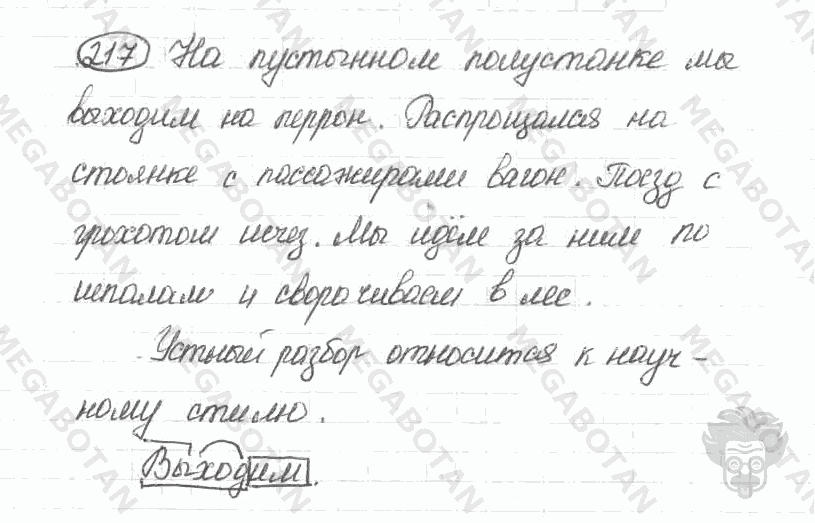 217 На пустынном полустанке мы
выходим на перрон. Распрощался на
стоянке с пассажирами вагон. Поезд с
грохотом исчез. Мы идём за ним по
шпалам и сворачиваем в лес.
Устный разбор относится к науч-
ному стилю.
Выходим.
MEGABOTAN